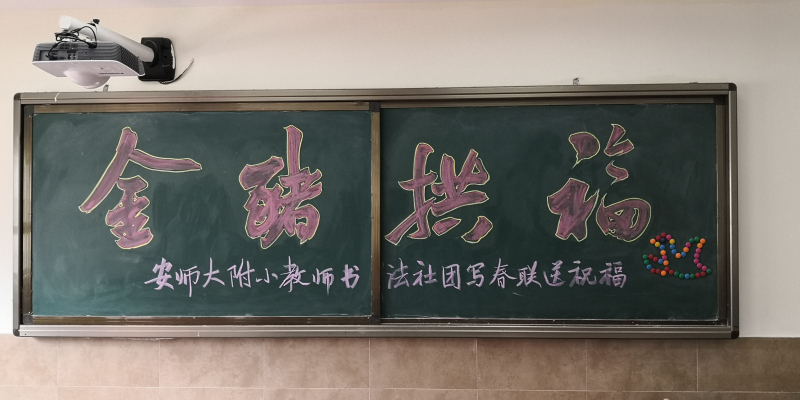 金豬拱福
安师大附小教师书法社团写春联送祝福